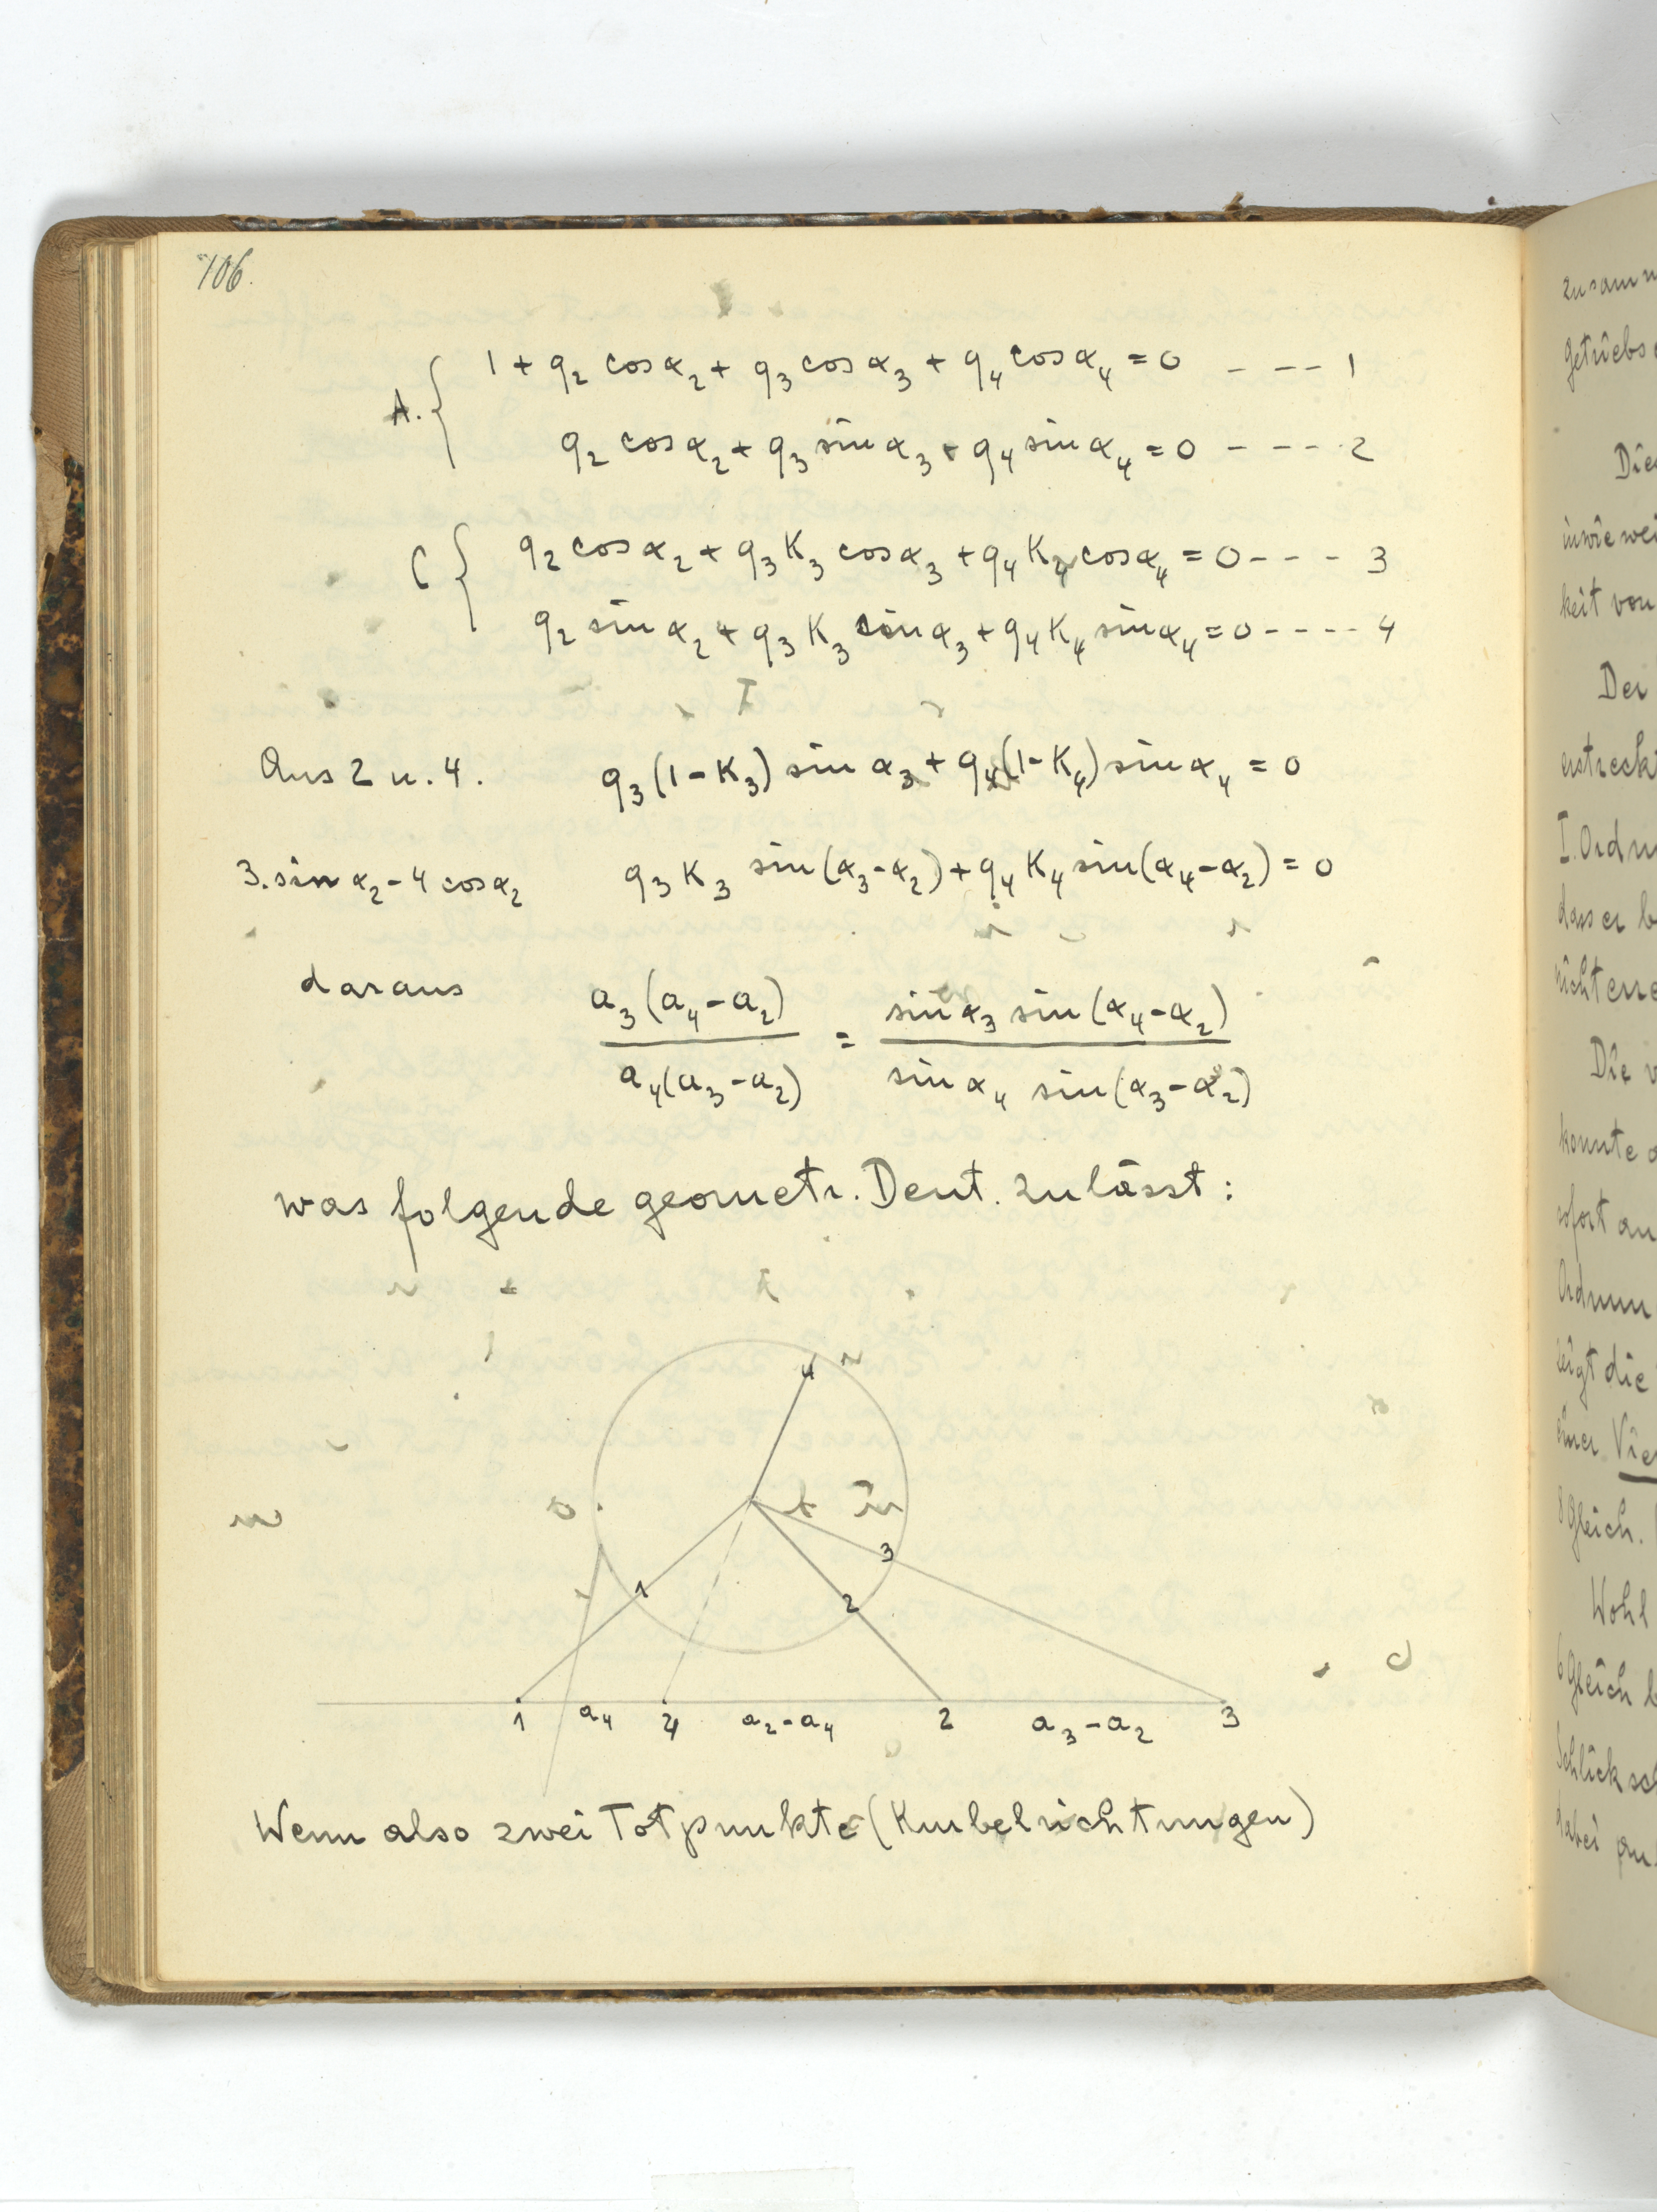 106.
A. { 1 + q₂ cos α₂ + q₃ cos α₃ + q₄ cos α₄ = 0 - - - - 1
q₂ cos α₂ + q₃ sin α₃ + q₄ sin α₄ = 0 - - - - 2
C { q₂ cos α₂ + q₃ K₃ cos α₃ + q₄ K₄ cos α₄ = 0 - - - 3
q₂ sin α₂ + q₃ K₃ sin α₃ + q₄ K₄ sin α₄ = 0 - - - - 4
Aus 2 u. 4. q₃ (1 - K₃) sin α₃ + q₄ (1 - K₄) sin α₄ = 0
3. sin α₂ - 4 cos α₂ q₃ K₃ sin(α₃ - α₂) + q₄ K₄ sin(α₄ - α₂) = 0
daraus a₃(a₄ - a₂) / a₄(a₃ - a₂) = sin α₃ sin(α₄ - α₂) / sin α₄ sin(α₃ - α₂)
was folgende geometr. Deut. zulässt:
4
3
1 2
1 a₄ 4 a₂ - a₄ 2 a₃ - a₂ 3
Wenn also zwei Totpunkte (Kurbelrichtungen)
Der
I. Ordnu
dass er b
Die v
konnte
sofort an
zeigt die
einer Vie
8 Gleich.
Wohl
6 Gleich b
Schlick sc